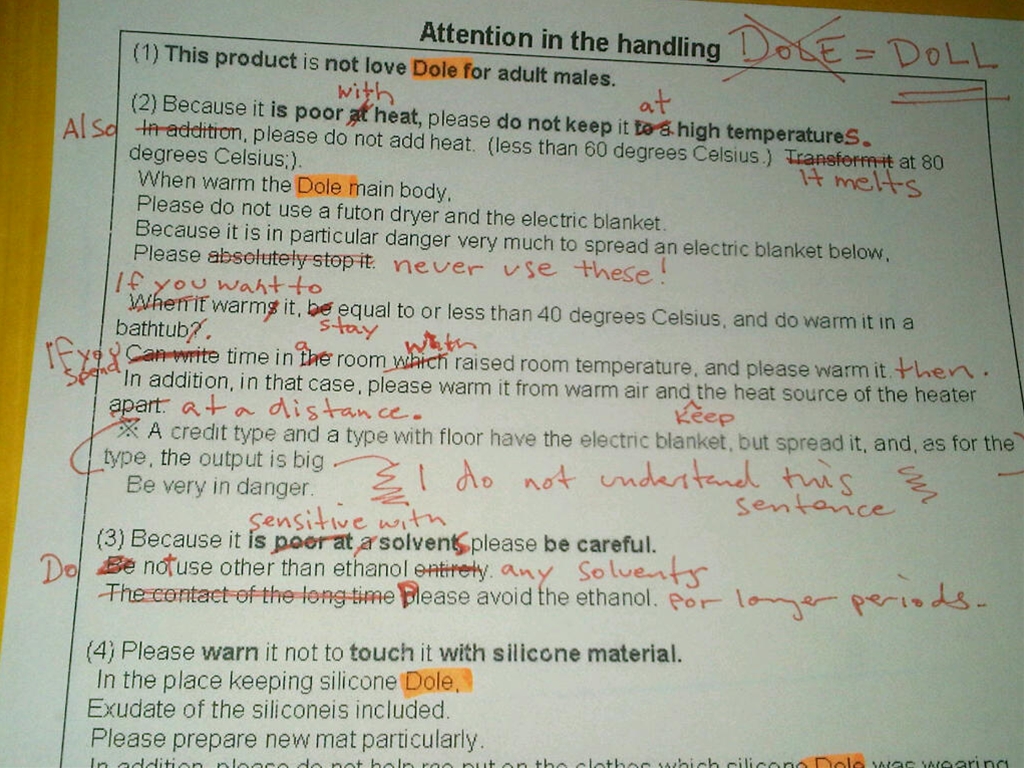 Attention in the handling DOLE = DOLL
(1) This product is not love Dole for adult males.
with at
(2) Because it is poor at heat, please do not keep it to a high temperatures.
Also In addition, please do not add heat. (less than 60 degrees Celsius.) Transform it at 80
degrees Celsius;). It melts
When warm the Dole main body,
Please do not use a futon dryer and the electric blanket.
Because it is in particular danger very much to spread an electric blanket below,
Please absolutely stop it. never use these!
If you want to
When it warms it, be equal to or less than 40 degrees Celsius, and do warm it in a
stay
bathtub?.
a with
If you spend Can write time in the room which raised room temperature, and please warm it. then.
In addition, in that case, please warm it from warm air and the heat source of the heater
keep
apart. at a distance.
※ A credit type and a type with floor have the electric blanket, but spread it, and, as for the
type, the output is big I do not understand this
sentence
Be very in danger.
sensitive with
(3) Because it is poor at a solvents please be careful.
Do Be not use other than ethanol entirely. any solvents
The contact of the long time Please avoid the ethanol. for longer periods.
(4) Please warn it not to touch it with silicone material.
In the place keeping silicone Dole,
Exudate of the siliconeis included.
Please prepare new mat particularly.
In addition, please do not help me put on the clothes which silicone Dole was wearing